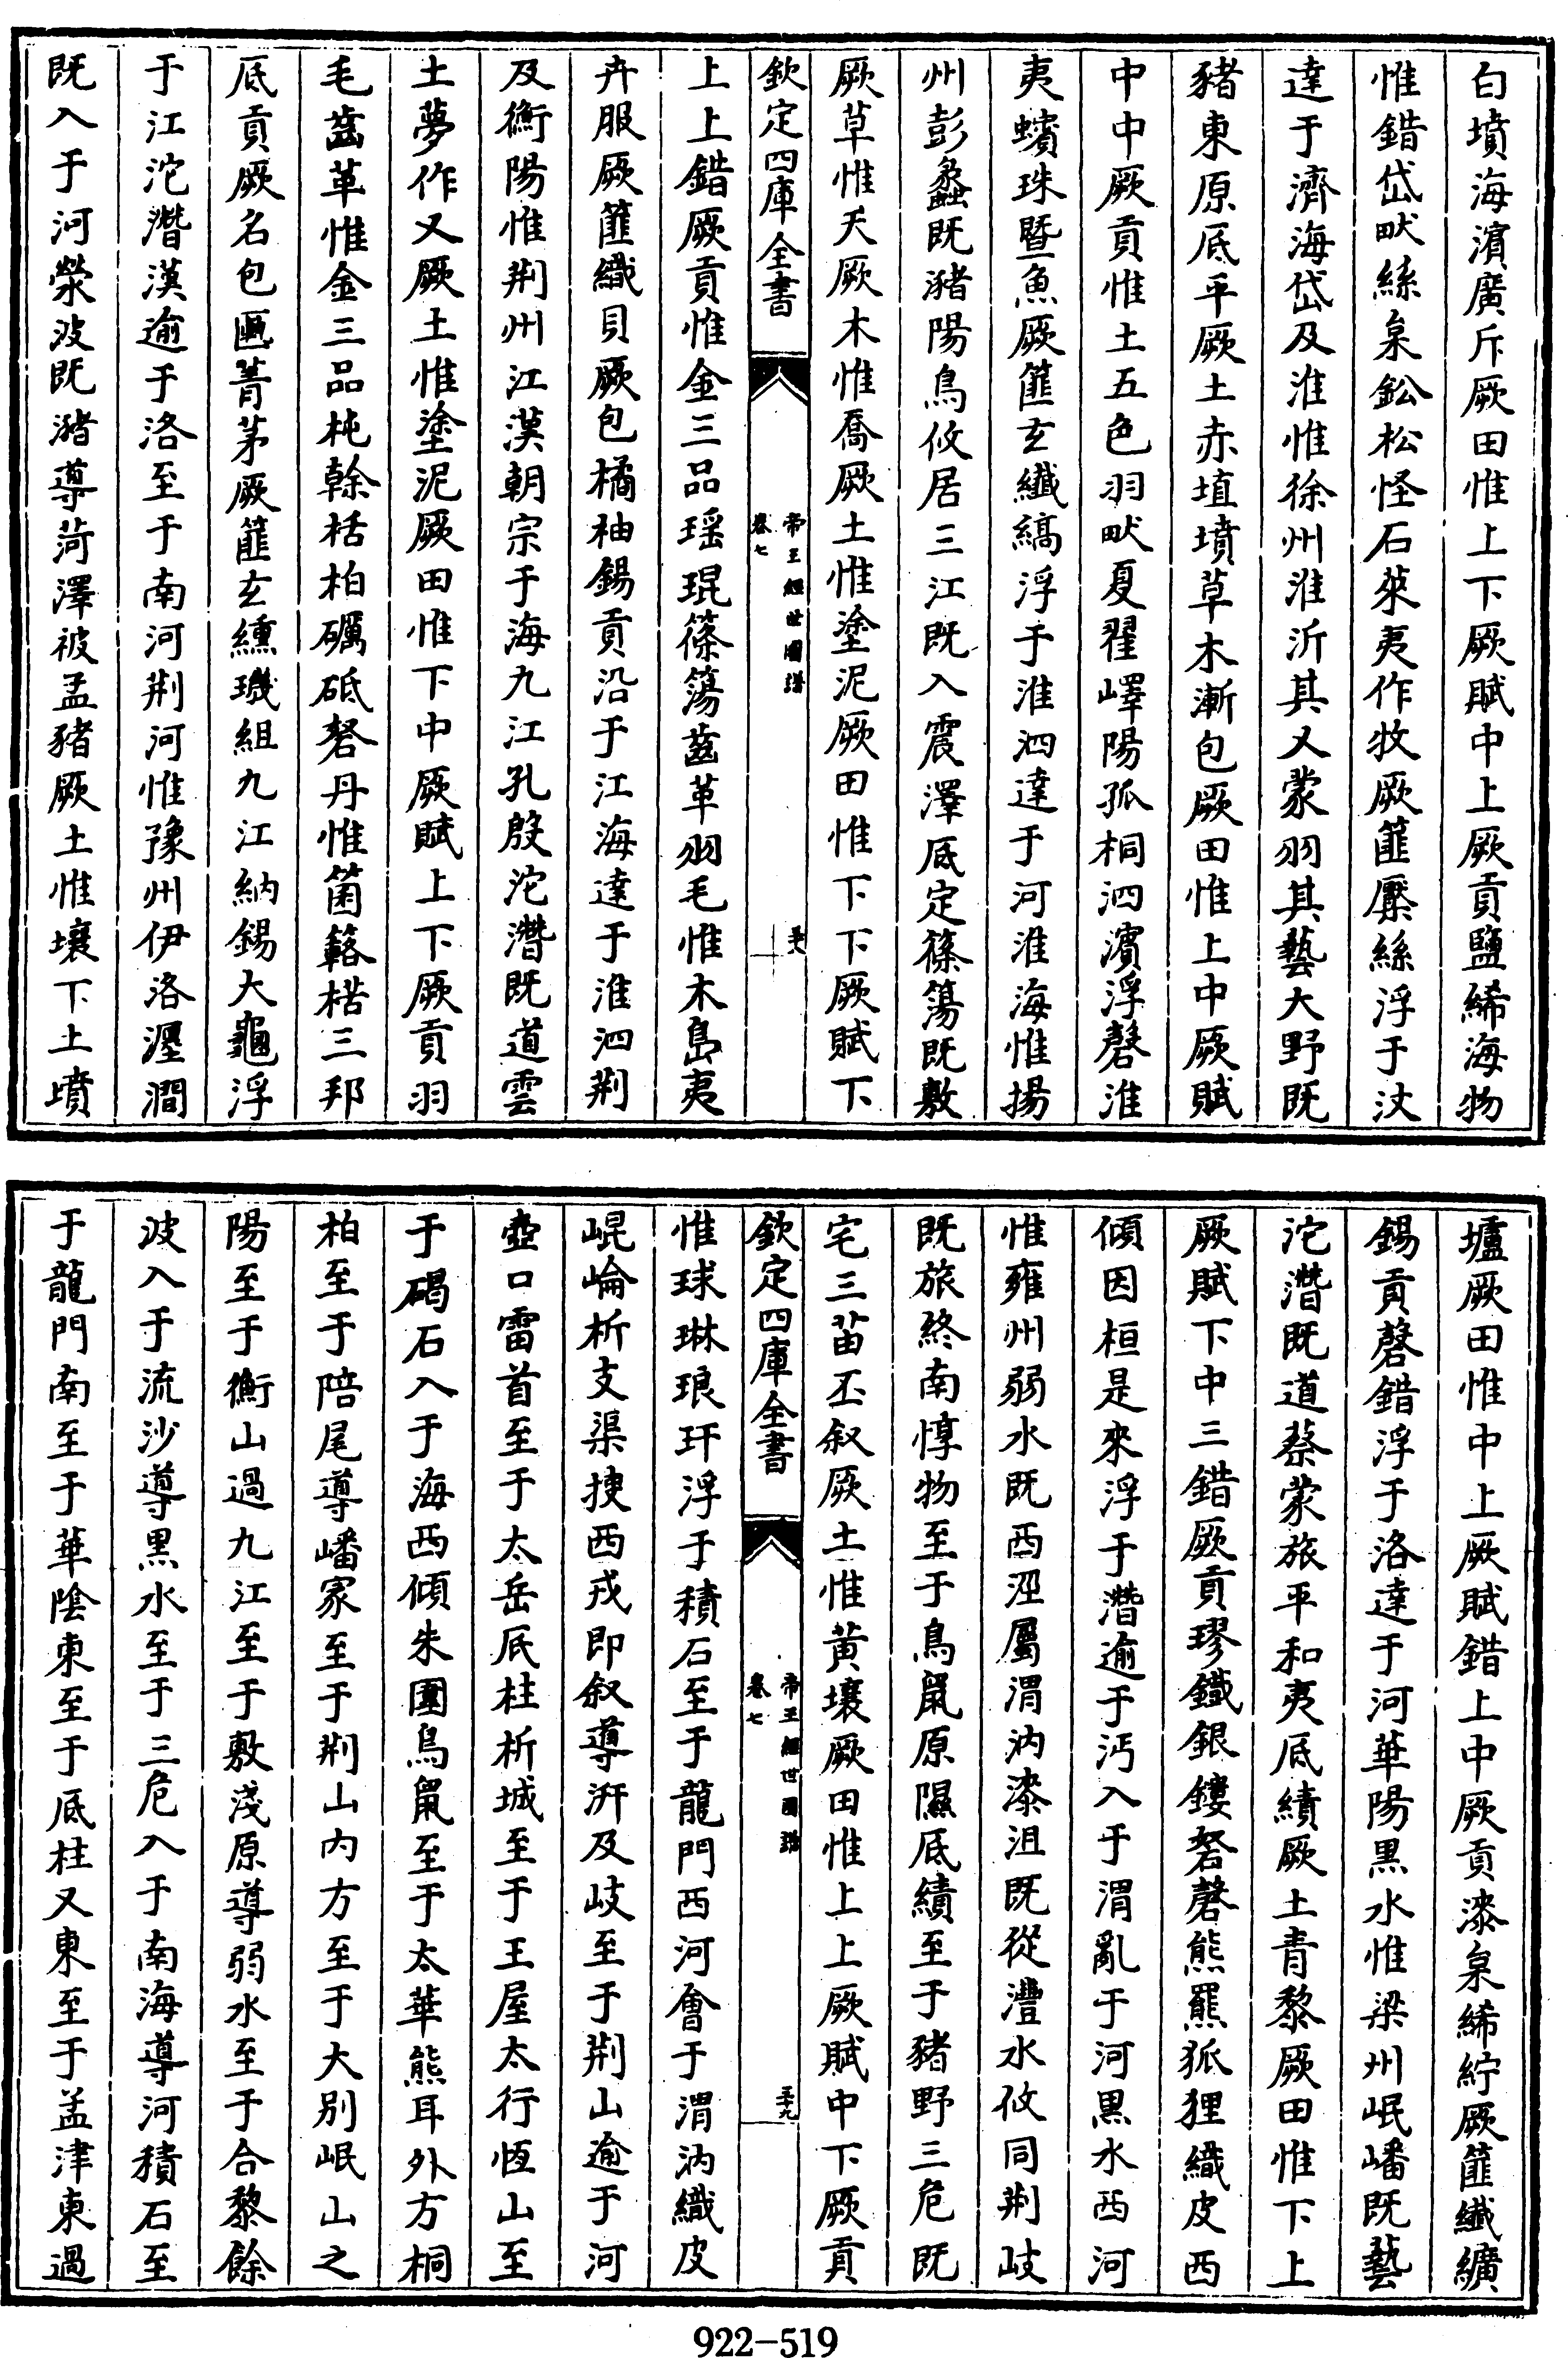 白墳海濵廣斥厥田惟上下厥賦中上厥貢鹽絺海物
惟錯岱畎絲枲鈆松怪石萊夷作牧厥篚檿絲浮于汶
達于濟海岱及淮惟徐州淮沂其乂蒙羽其藝大野既
豬東原厎平厥土赤埴墳草木漸包厥田惟上中厥賦
中中厥貢惟土五色羽畎夏翟嶧陽孤桐泗濵浮磬淮
夷蠙珠暨魚厥篚玄纖縞浮于淮泗達于河淮海惟揚
州彭蠡既豬陽鳥攸居三江既入震澤厎定篠簜既敷
厥草惟夭厥木惟喬厥土惟塗泥厥田惟下下厥賦下
欽定四庫全書
帝王經世圖譜
卷七
五十八
上上錯厥貢惟金三品瑶琨篠簜齒革羽毛惟木島夷
卉服厥篚織貝厥包橘柚錫貢沿于江海達于淮泗荆
及衡陽惟荆州江漢朝宗于海九江孔殷沱濳既道雲
土夢作乂厥土惟塗泥厥田惟下中厥賦上下厥貢羽
毛齒革惟金三品杶榦栝柏礪砥砮丹惟箘簵楛三邦
厎貢厥名包匭菁茅厥篚玄纁璣組九江納錫大龜浮
于江沱濳漢逾于洛至于南河荆河惟豫州伊洛瀍澗
既入于河滎波既豬導菏澤被孟豬厥土惟壤下土墳
壚厥田惟中上厥賦錯上中厥貢漆枲絺紵厥篚纖纊
錫貢磬錯浮于洛達于河華陽黒水惟梁州岷嶓既藝
沱濳既道蔡蒙旅平和夷厎績厥土青黎厥田惟下上
厥賦下中三錯厥貢璆鐵銀鏤砮磬熊羆狐狸織皮西
傾因桓是來浮于濳逾于沔入于渭亂于河黒水西河
惟雍州弱水既西涇屬渭汭漆沮既從灃水攸同荆岐
既旅終南惇物至于鳥鼠原隰厎績至于豬野三危既
宅三苗丕叙厥土惟黄壤厥田惟上上厥賦中下厥貢
欽定四庫全書
帝王經世圖譜
卷七
五十九
惟球琳琅玕浮于積石至于龍門西河會于渭汭織皮
崐崘析支渠捜西戎即叙導汧及岐至于荆山逾于河
壺口雷首至于太岳厎柱析城至于王屋太行恆山至
于碣石入于海西傾朱圉鳥鼠至于太華熊耳外方桐
柏至于陪尾導嶓冢至于荆山内方至于大别岷山之
陽至于衡山過九江至于敷淺原導弱水至于合黎餘
波入于流沙導黒水至于三危入于南海導河積石至
于龍門南至于華陰東至于厎柱又東至于孟津東過
922-519